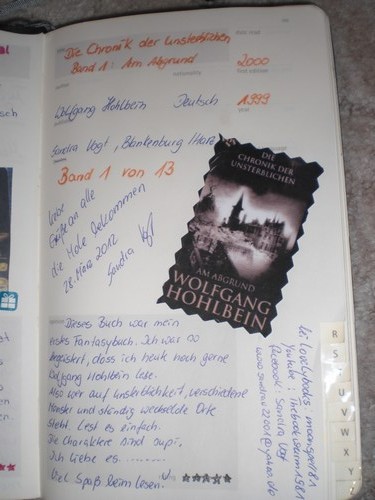 Die Chronik der Unsterblichen
Band 1: Am Abgrund
2000
nationality
first edition
Wolfgang Hohlbein Deutsch
1999
Sandra Vogt, Blankenburg
Band 1 von 13
Liebe
Grüße an alle
die Mole bekommen
28. März 2012
Sandra Vogt
DIE
CHRONIK DER
UNSTERBLICHEN
AM ABGRUND
WOLFGANG
HOHLBEIN
Dieses Buch war mein
erstes Fantasybuch. Ich war so
begeistert, dass ich heute noch gerne
Wolfgang Hohlbein lese.
Also wer auf unsterblichkeit, verschiedene
Monster und ständig wechselde Orte
steht. Lest es einfach.
Die charaktere sind supi.
Ich liebe es........
Viel Spaß beim lesen.
bei lovelybooks
Youtube: Thebookworm1981
facebook: Sandra Vogt
R
S
U
V
W
X
Y